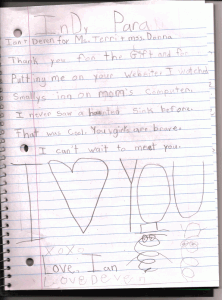 InDy Para
Isn't Deren for Ms. Terri + mrs. Donna
Thank you fon the Gift and for
Putting me on your website. I watched
Smilys inn on mom's computer.
I never Saw a haunted Sink before.
That was cool. You girls are brave.
I can't wait to meet you.
I YOU
XOX
Love, Ian